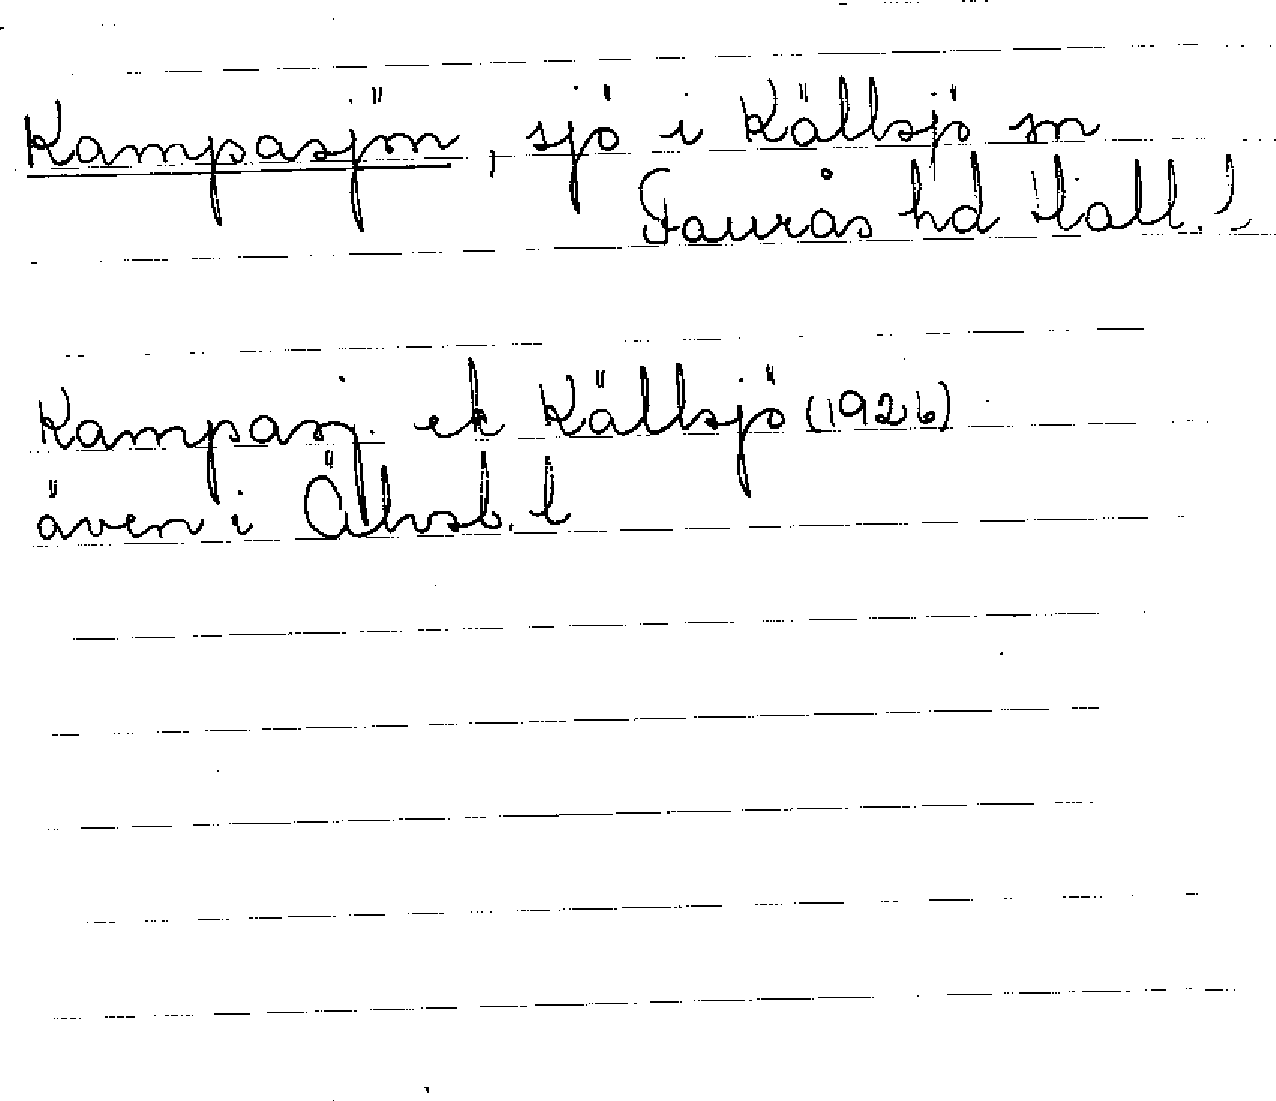 Kampasjön, sjö i Källsjö sn
Faurås hd Hall. l.
Kampasj. ek Källsjö (1926)
även i Älvsb. l